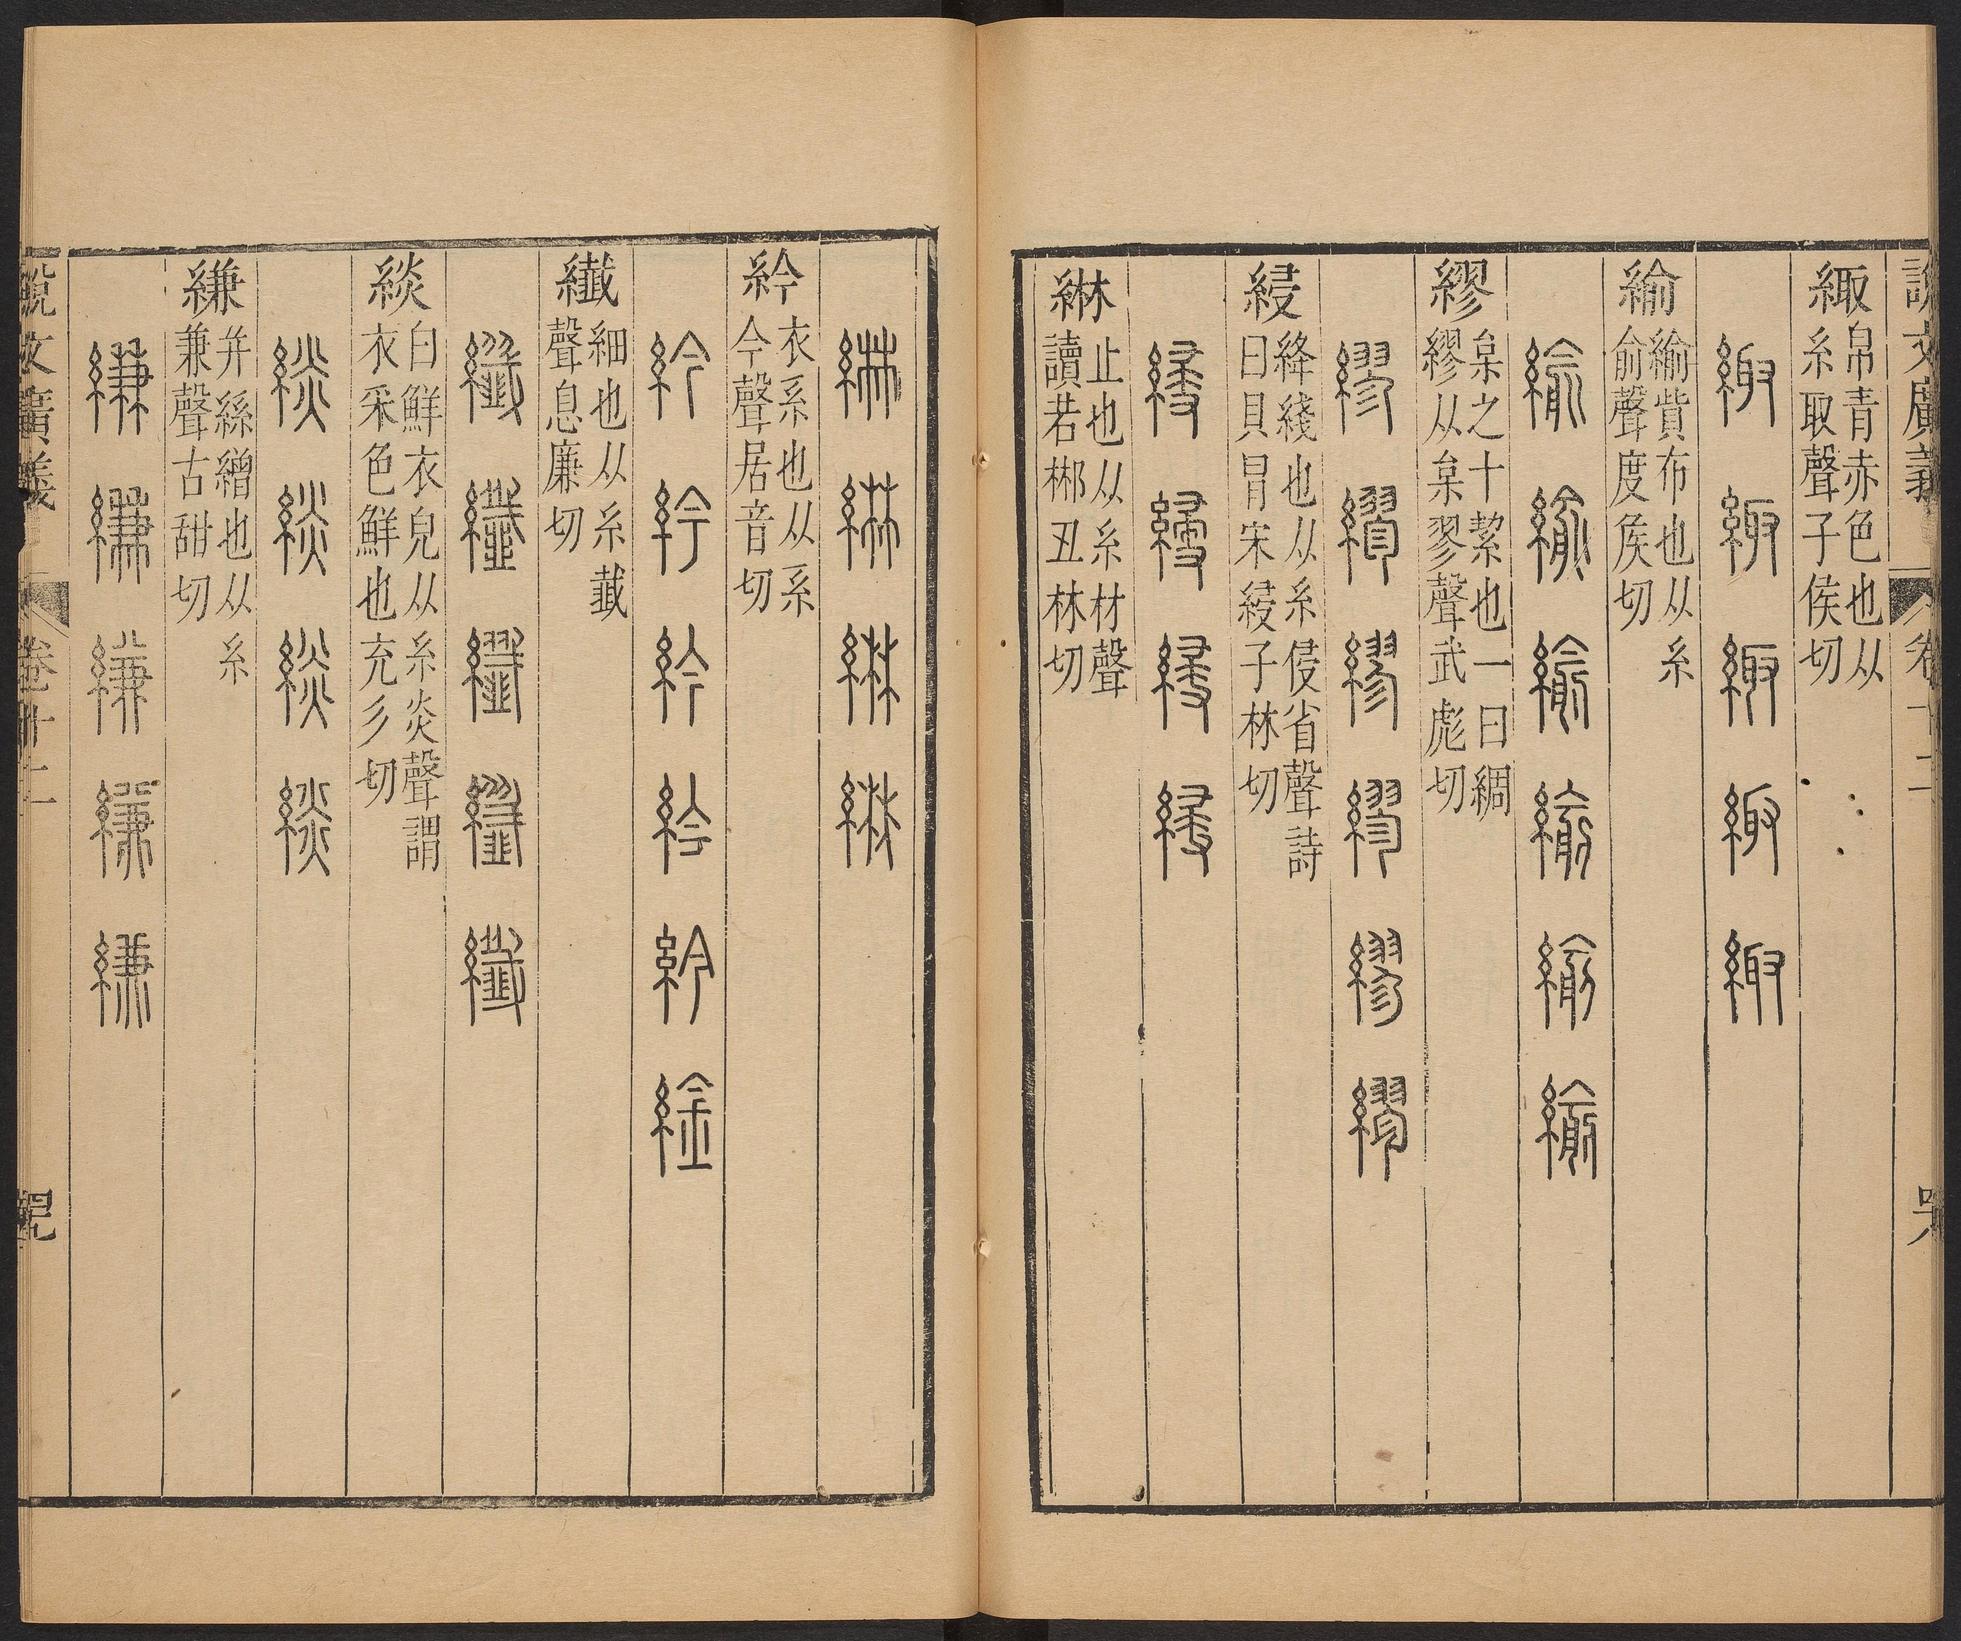 說文廣義
卷十二
緅
帛青赤色也从
糸取聲子侯切
緅緅緅緅緅
緰
緰貲布也从糸
俞聲度侯切
緰緰緰緰緰緰
繆
枲之十絜也一曰綢
繆从枲翏聲武彪切
繆繆繆繆繆繆
綅
絳綫也从糸侵省聲詩
曰貝冑宋綅子林切
綅綅綅綅
綝
止也从糸材聲
讀若郴丑林切
綝綝綝綝
紟
衣系也从系
今聲居音切
紟紟紟紟紟
纖
細也从糸韱
聲息廉切
纖纖纖纖纖
緂
白鮮衣皃从糸炎聲謂
衣采色鮮也充彡切
緂緂緂緂
縑
并絲繒也从糸
兼聲古甜切
縑縑縑縑縑
說文廣義